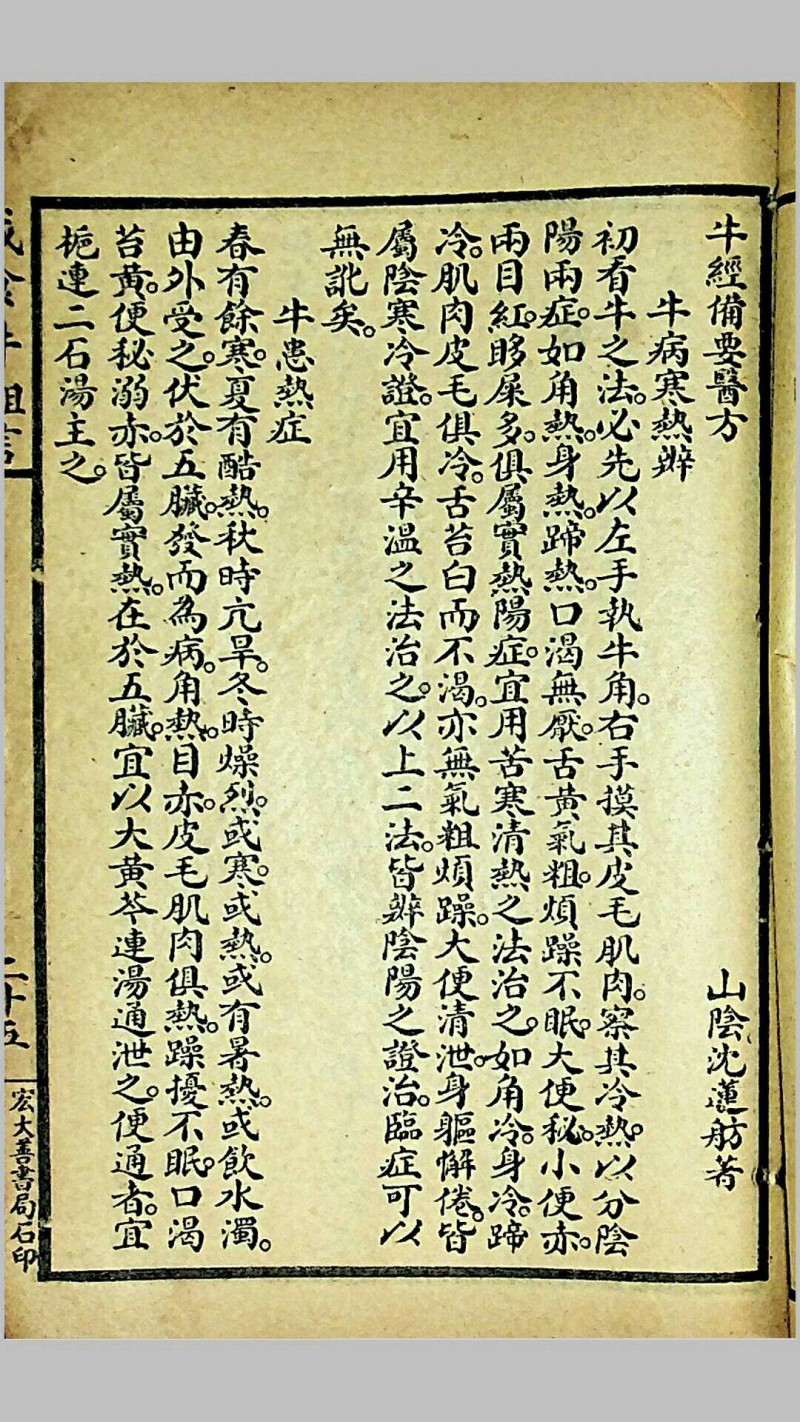 牛經備要醫方 山陰沈蓮舫著
牛病寒熱辨
初看牛之法。必先以左手執牛角。右手摸其皮毛肌肉。察其冷熱。以分陰
陽兩症。如角熱。身熱。蹄熱。口渴無厭。舌黃氣粗。煩躁不眠。大便秘。小便赤。
兩目紅。眵屎多。俱屬實熱陽症。宜用苦寒清熱之法治之。如角冷。身冷。蹄
冷。肌肉皮毛俱冷。舌苔白而不渴。亦無氣粗煩躁。大便清泄。身軀懈倦。皆
屬陰寒冷證。宜用辛溫之法治之。以上二法。皆辨陰陽之證治。臨症可以
無訛矣。
牛患熱症
春有餘寒。夏有酷熱。秋時亢旱。冬時燥烈。或寒。或熱。或有暑熱。或飲水濁。
由外受之。伏於五臟。發而為病。角熱。目赤。皮毛肌肉俱熱。躁擾不眠。口渴
苔黃。便秘溺赤。皆屬實熱。在於五臟。宜以大黃芩連湯通泄之。便通者。宜
梔連二石湯主之。
二十五
宏大善書局石印